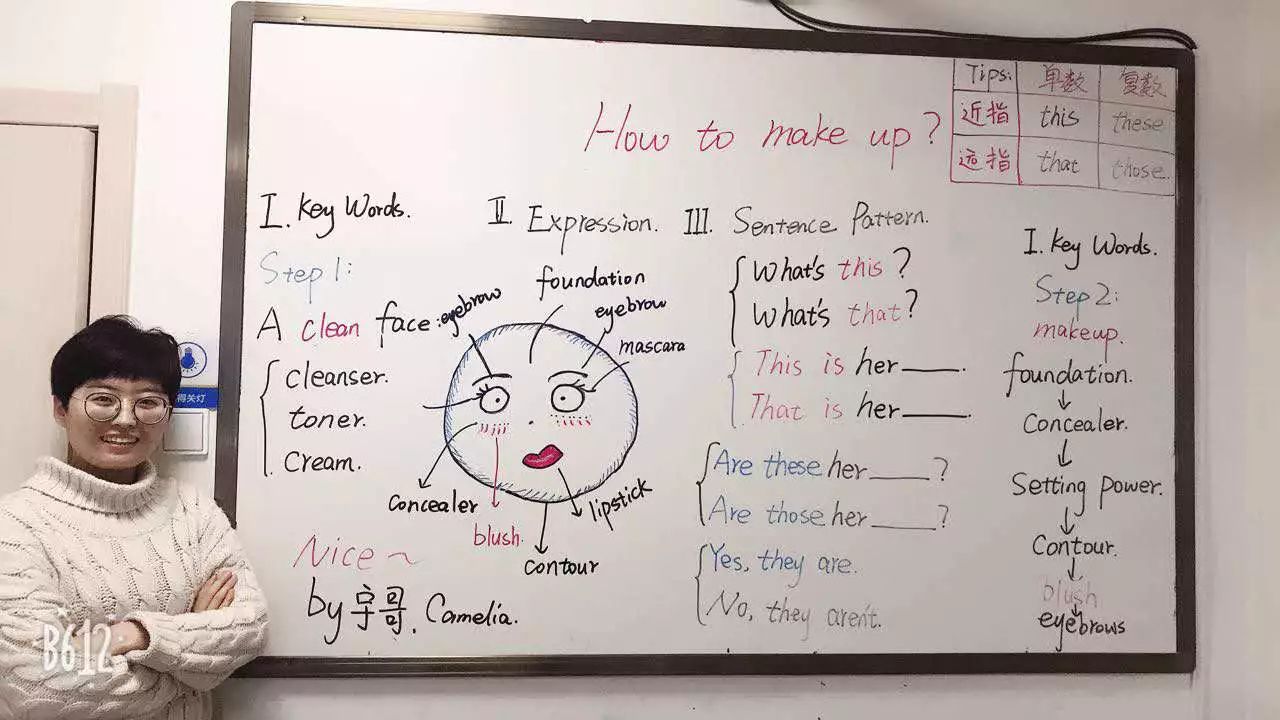 How to make up?
Tips: 单数 复数
近指 this these
远指 that those.
I. Key Words.
Step 1:
A clean face:
cleanser.
toner.
Cream.
Nice ~
by 宇哥. Camelia.
II. Expression.
foundation
eyebrow
eyebrow
mascara
Concealer
blush.
lipstick
Contour
III. Sentence Pattern.
What's this?
What's that?
This is her ____.
That is her ____.
Are these her ____?
Are those her ____?
Yes, they are.
No, they aren't.
I. Key Words.
Step 2:
makeup.
foundation.
Concealer.
Setting power.
Contour.
blush
eyebrows
得关灯
B612